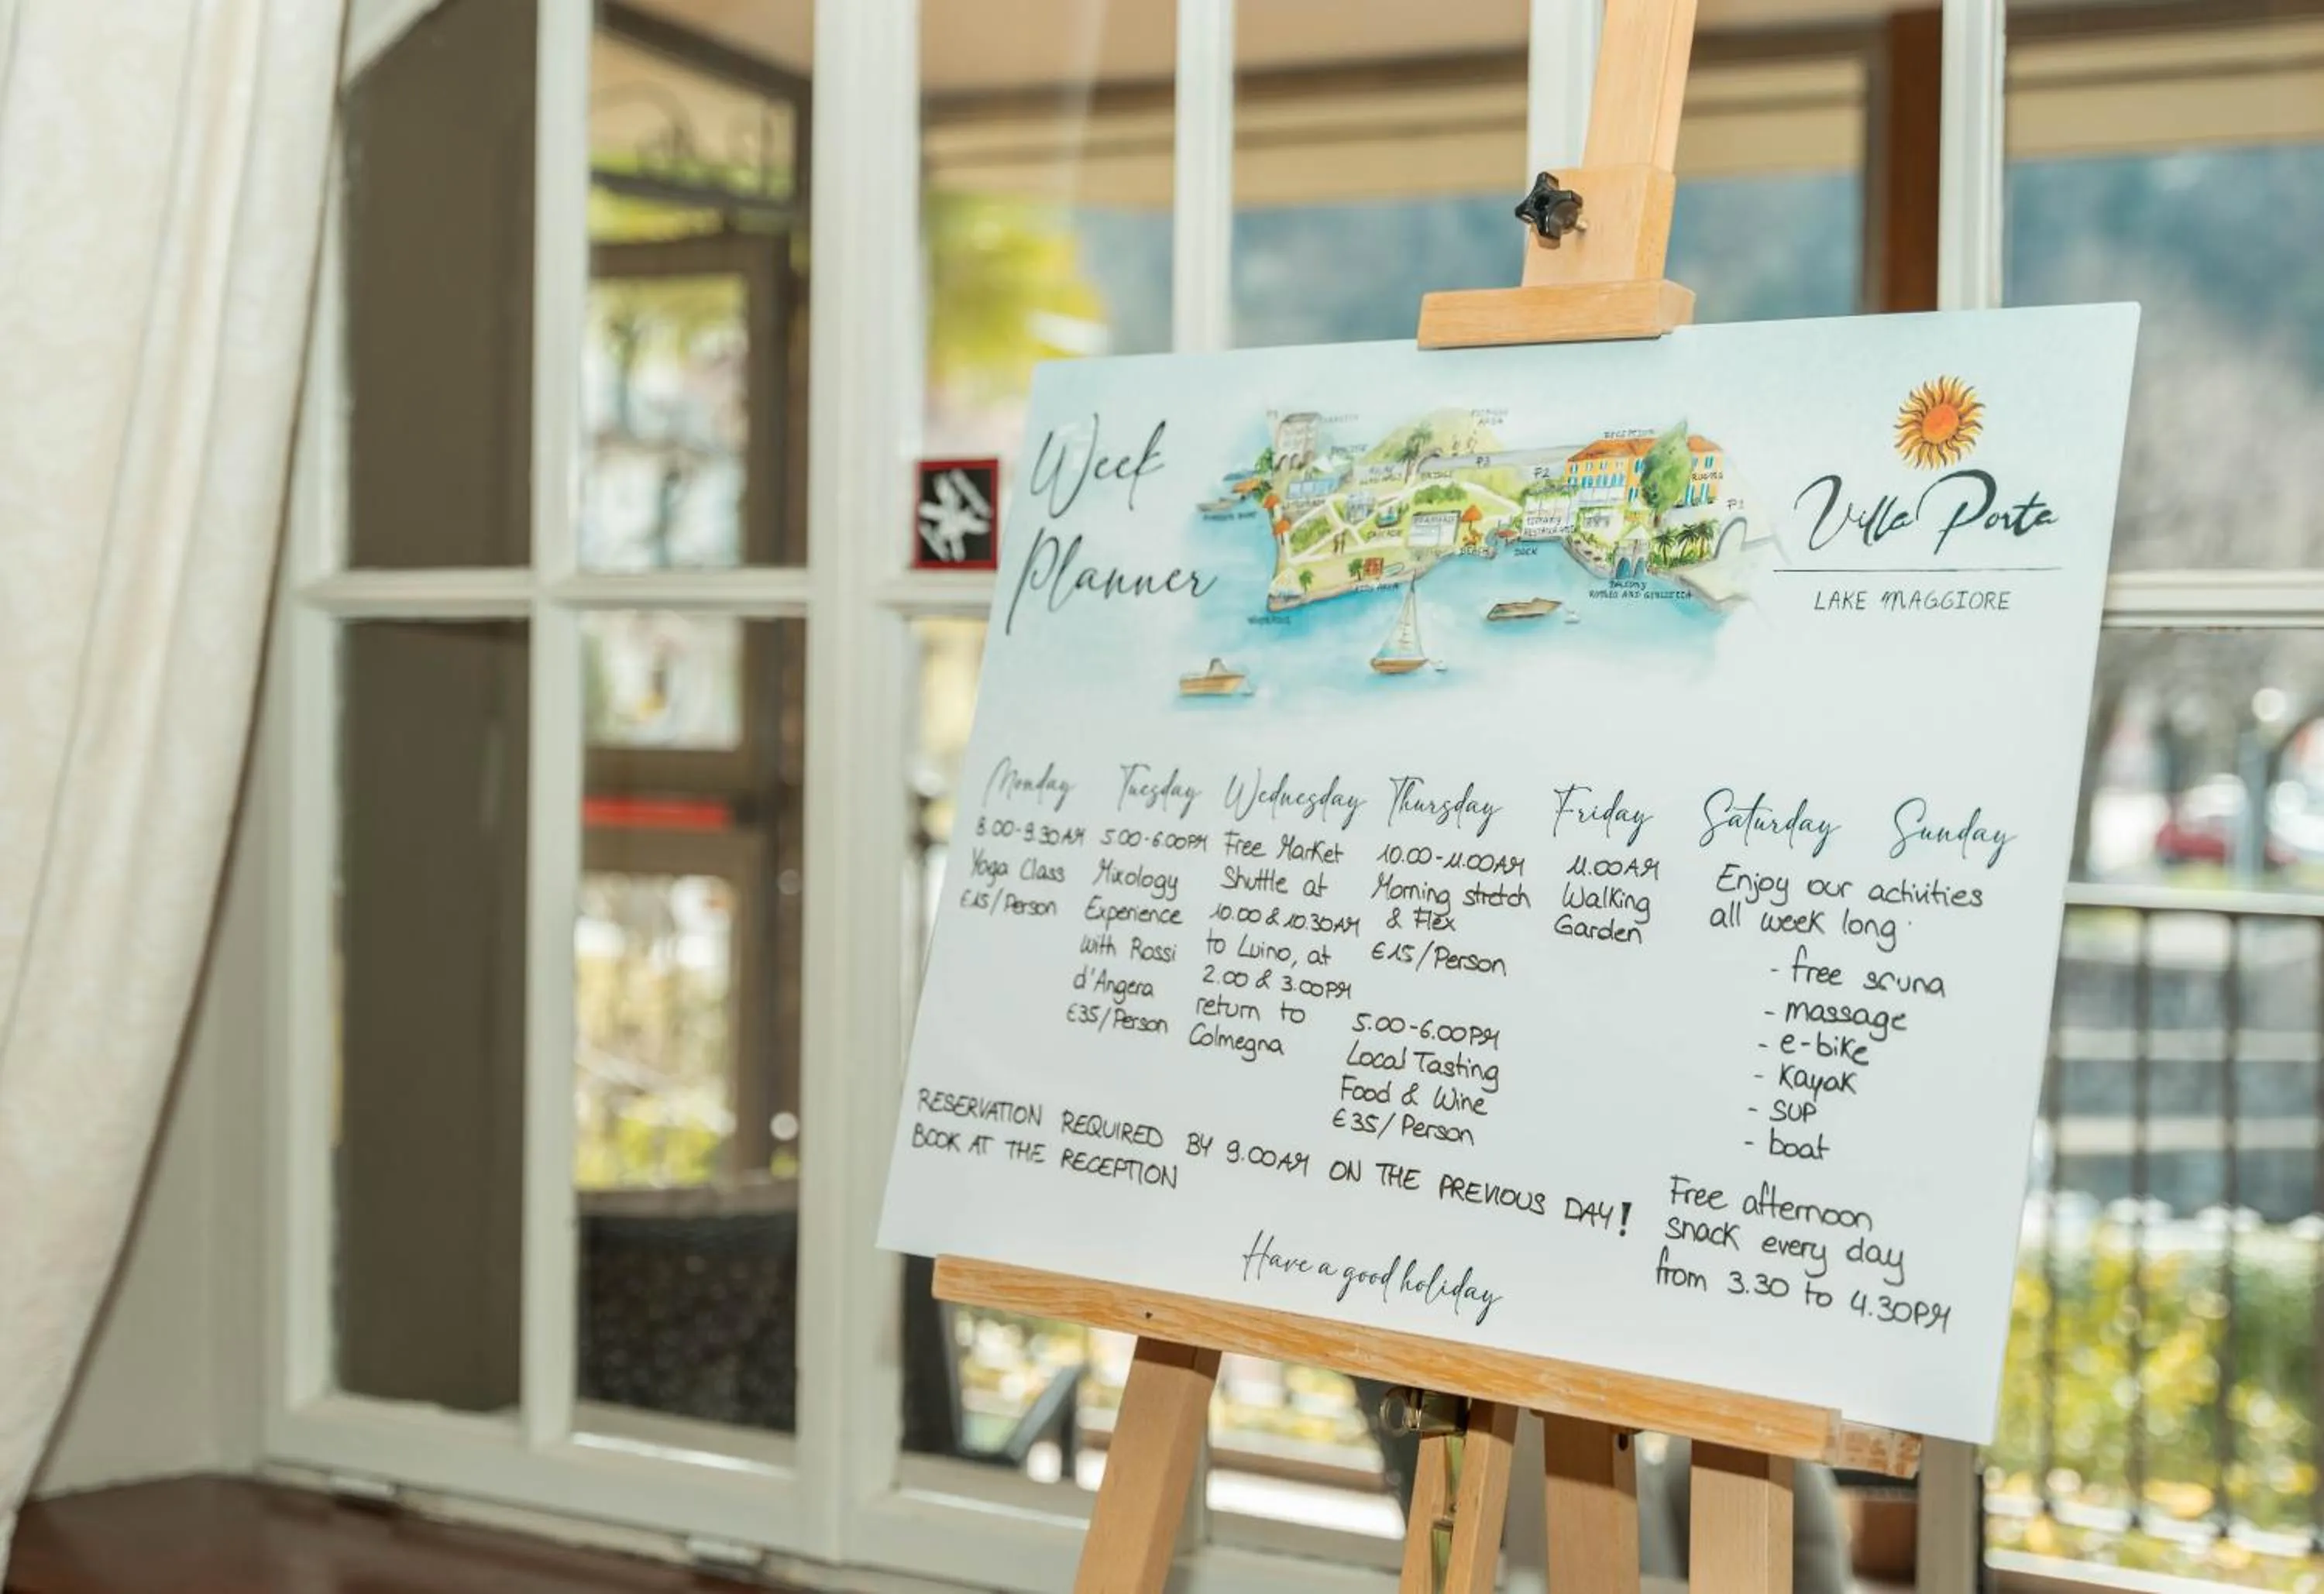 Week
Planner
RECEPTION
ROOMS
P3
P2
P1
BEACH
DOCK
BALCONY
ROMEO AND GIULIETTA
Villa Porta
LAKE MAGGIORE
Monday
8.00-9.30AM
Yoga Class
€15/Person
Tuesday
5.00-6.00PM
Mixology
Experience
with Rossi
d'Angera
€35/Person
Wednesday
Free Market
Shuttle at
10.00 & 10.30AM
to Luino, at
2.00 & 3.00PM
return to
Colmegna
Thursday
10.00-11.00AM
Morning stretch
& Flex
€15/Person
5.00-6.00PM
Local Tasting
Food & Wine
€35/Person
Friday
11.00AM
Walking
Garden
Saturday Sunday
Enjoy our activities
all week long
- free sauna
- massage
- e-bike
- Kayak
- SUP
- boat
Free afternoon
snack every day
from 3.30 to 4.30PM
RESERVATION REQUIRED BY 9.00AM ON THE PREVIOUS DAY!
BOOK AT THE RECEPTION
Have a good holiday